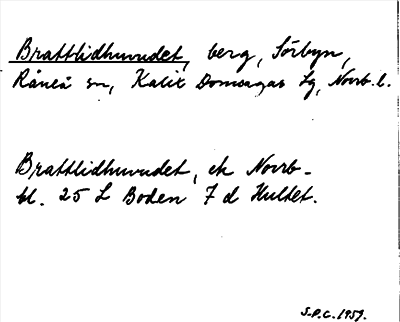 Brattlidhuvudet, berg, Sörbyn,
Råneå sn, Kalix Domsagas lg, Norrb. l.
Brattlidhuvudet, ek Norrb-
bl. 25 L Boden 7 d Hultet.
S.P.C. 1959.